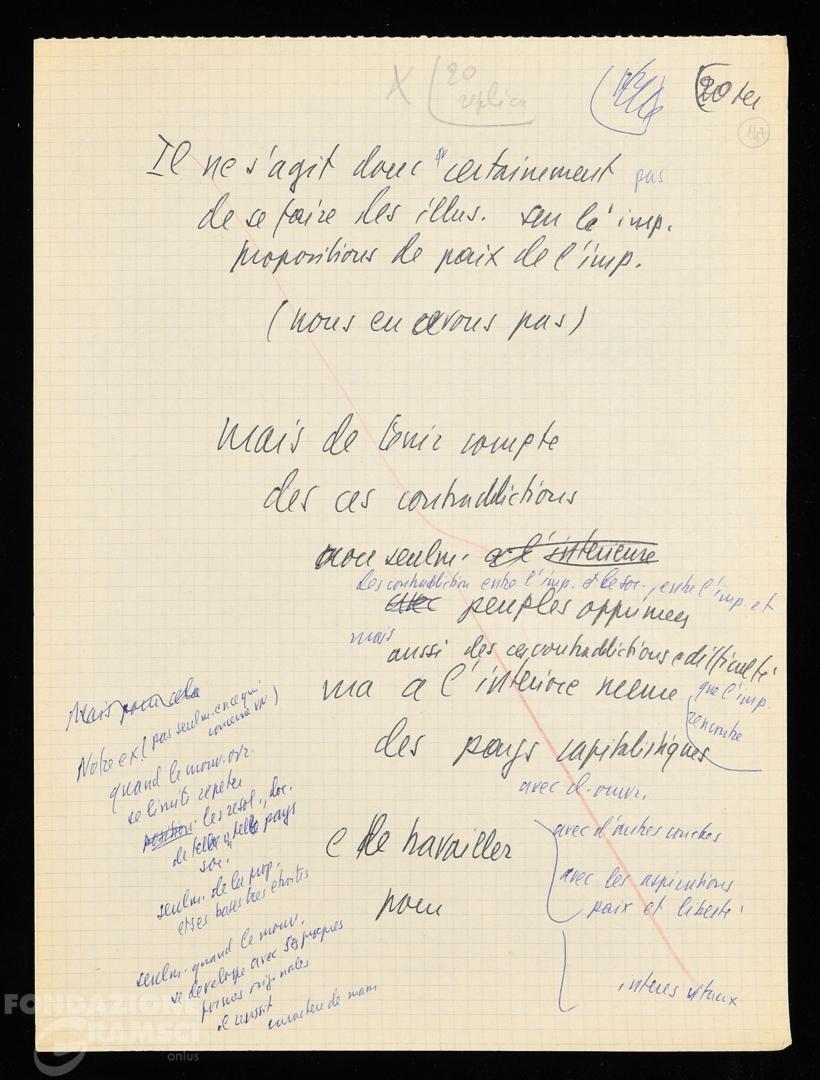 X (20
replica
20 ter
147
Il ne s'agit donc certainement pas
de se faire des illus. sur la imp.
propositions de paix de l'imp.
(nous en avons pas)
Mais de tenir compte
des ces contraddictions
non seulm. a l'interieure
des contraddiction entre l'imp. et le soc., entre l'imp. et
avec peuples opprimes
mais
aussi des ces contraddictions e difficulté
ma a l'interiore meme que l'imp.
rencontre
des pays capitalistiques
avec d. ouvr.
e de travailler
avec d'autres couches
avec les aspirations
paix et liberté
pour
interes vitaux
Mais pour cela
Notre ex. (pas seulm. en ce qui
concerne VN)
quand le mouv. ouv.
se limite repeter
position les resol., doc.
de telle u telle pays
soc.
seulm. de la prop.
et ses bases tres etroites
seulm. quand le mouv.
se developpe avec ses propres
formes originales
il reussit
caractere de mass
FONDAZIONE
GRAMSCI
onlus